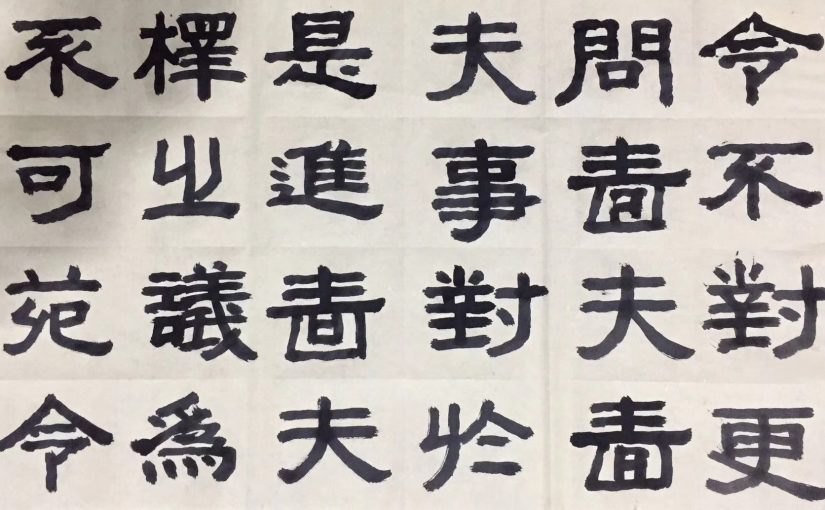 令不對更
問嗇夫嗇
夫事對於
是進嗇夫
檡之議為
不可苑令